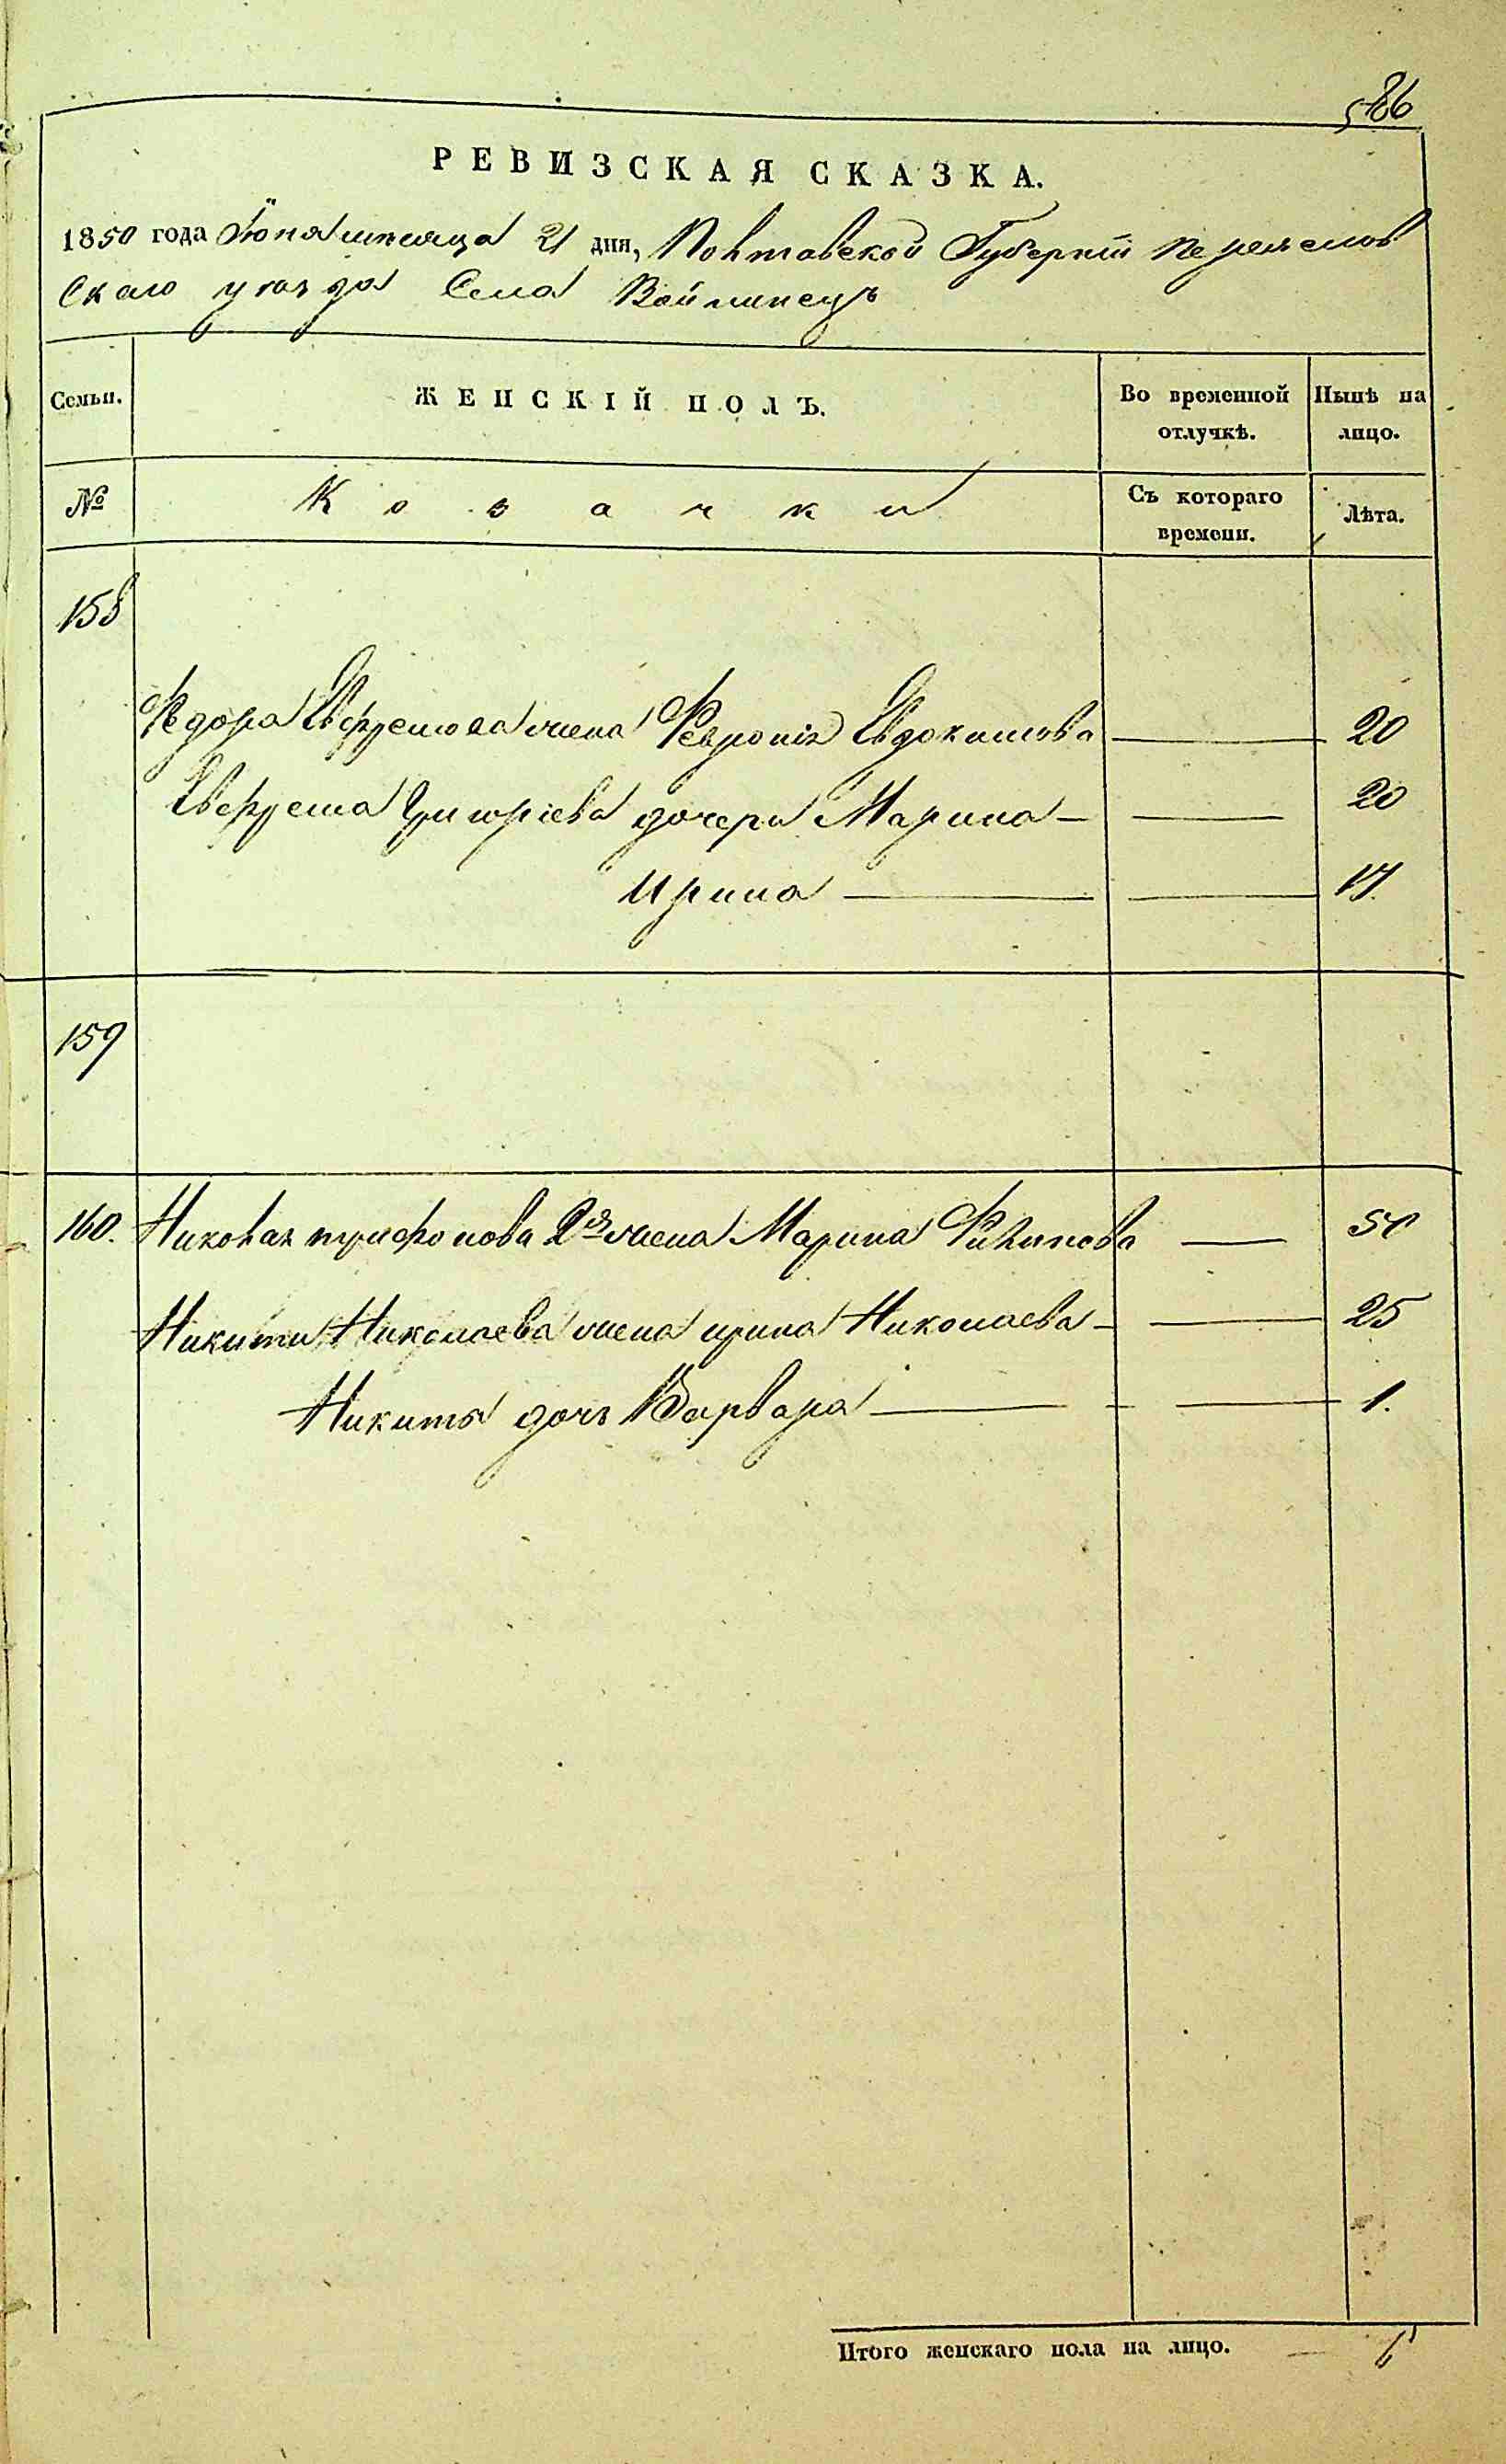 586
РЕВИЗСКАЯ СКАЗКА.
1850 года Іюня мѣсяца 21 дня, Полтавской Губерніи Переяслов
Скаго уѣзда Села Войтинецъ
Семьи. ЖЕНСКІЙ ПОЛЪ. Во временной отлучкѣ. Нынѣ на лицо.
№ Козачки Съ котораго времени. Лѣта.
158
Федора Евфремова жена Феврония Евдокимова — 20
Евфрема Григоріева дочери Марина — 20
Ирина — 17
159
160. Николая 2я жена Марина Филипова — 50
Никиты Николаева жена ирина Николаева — 25
Никиты дочь Варвара — 1.
Итого женскаго пола на лицо. — 6